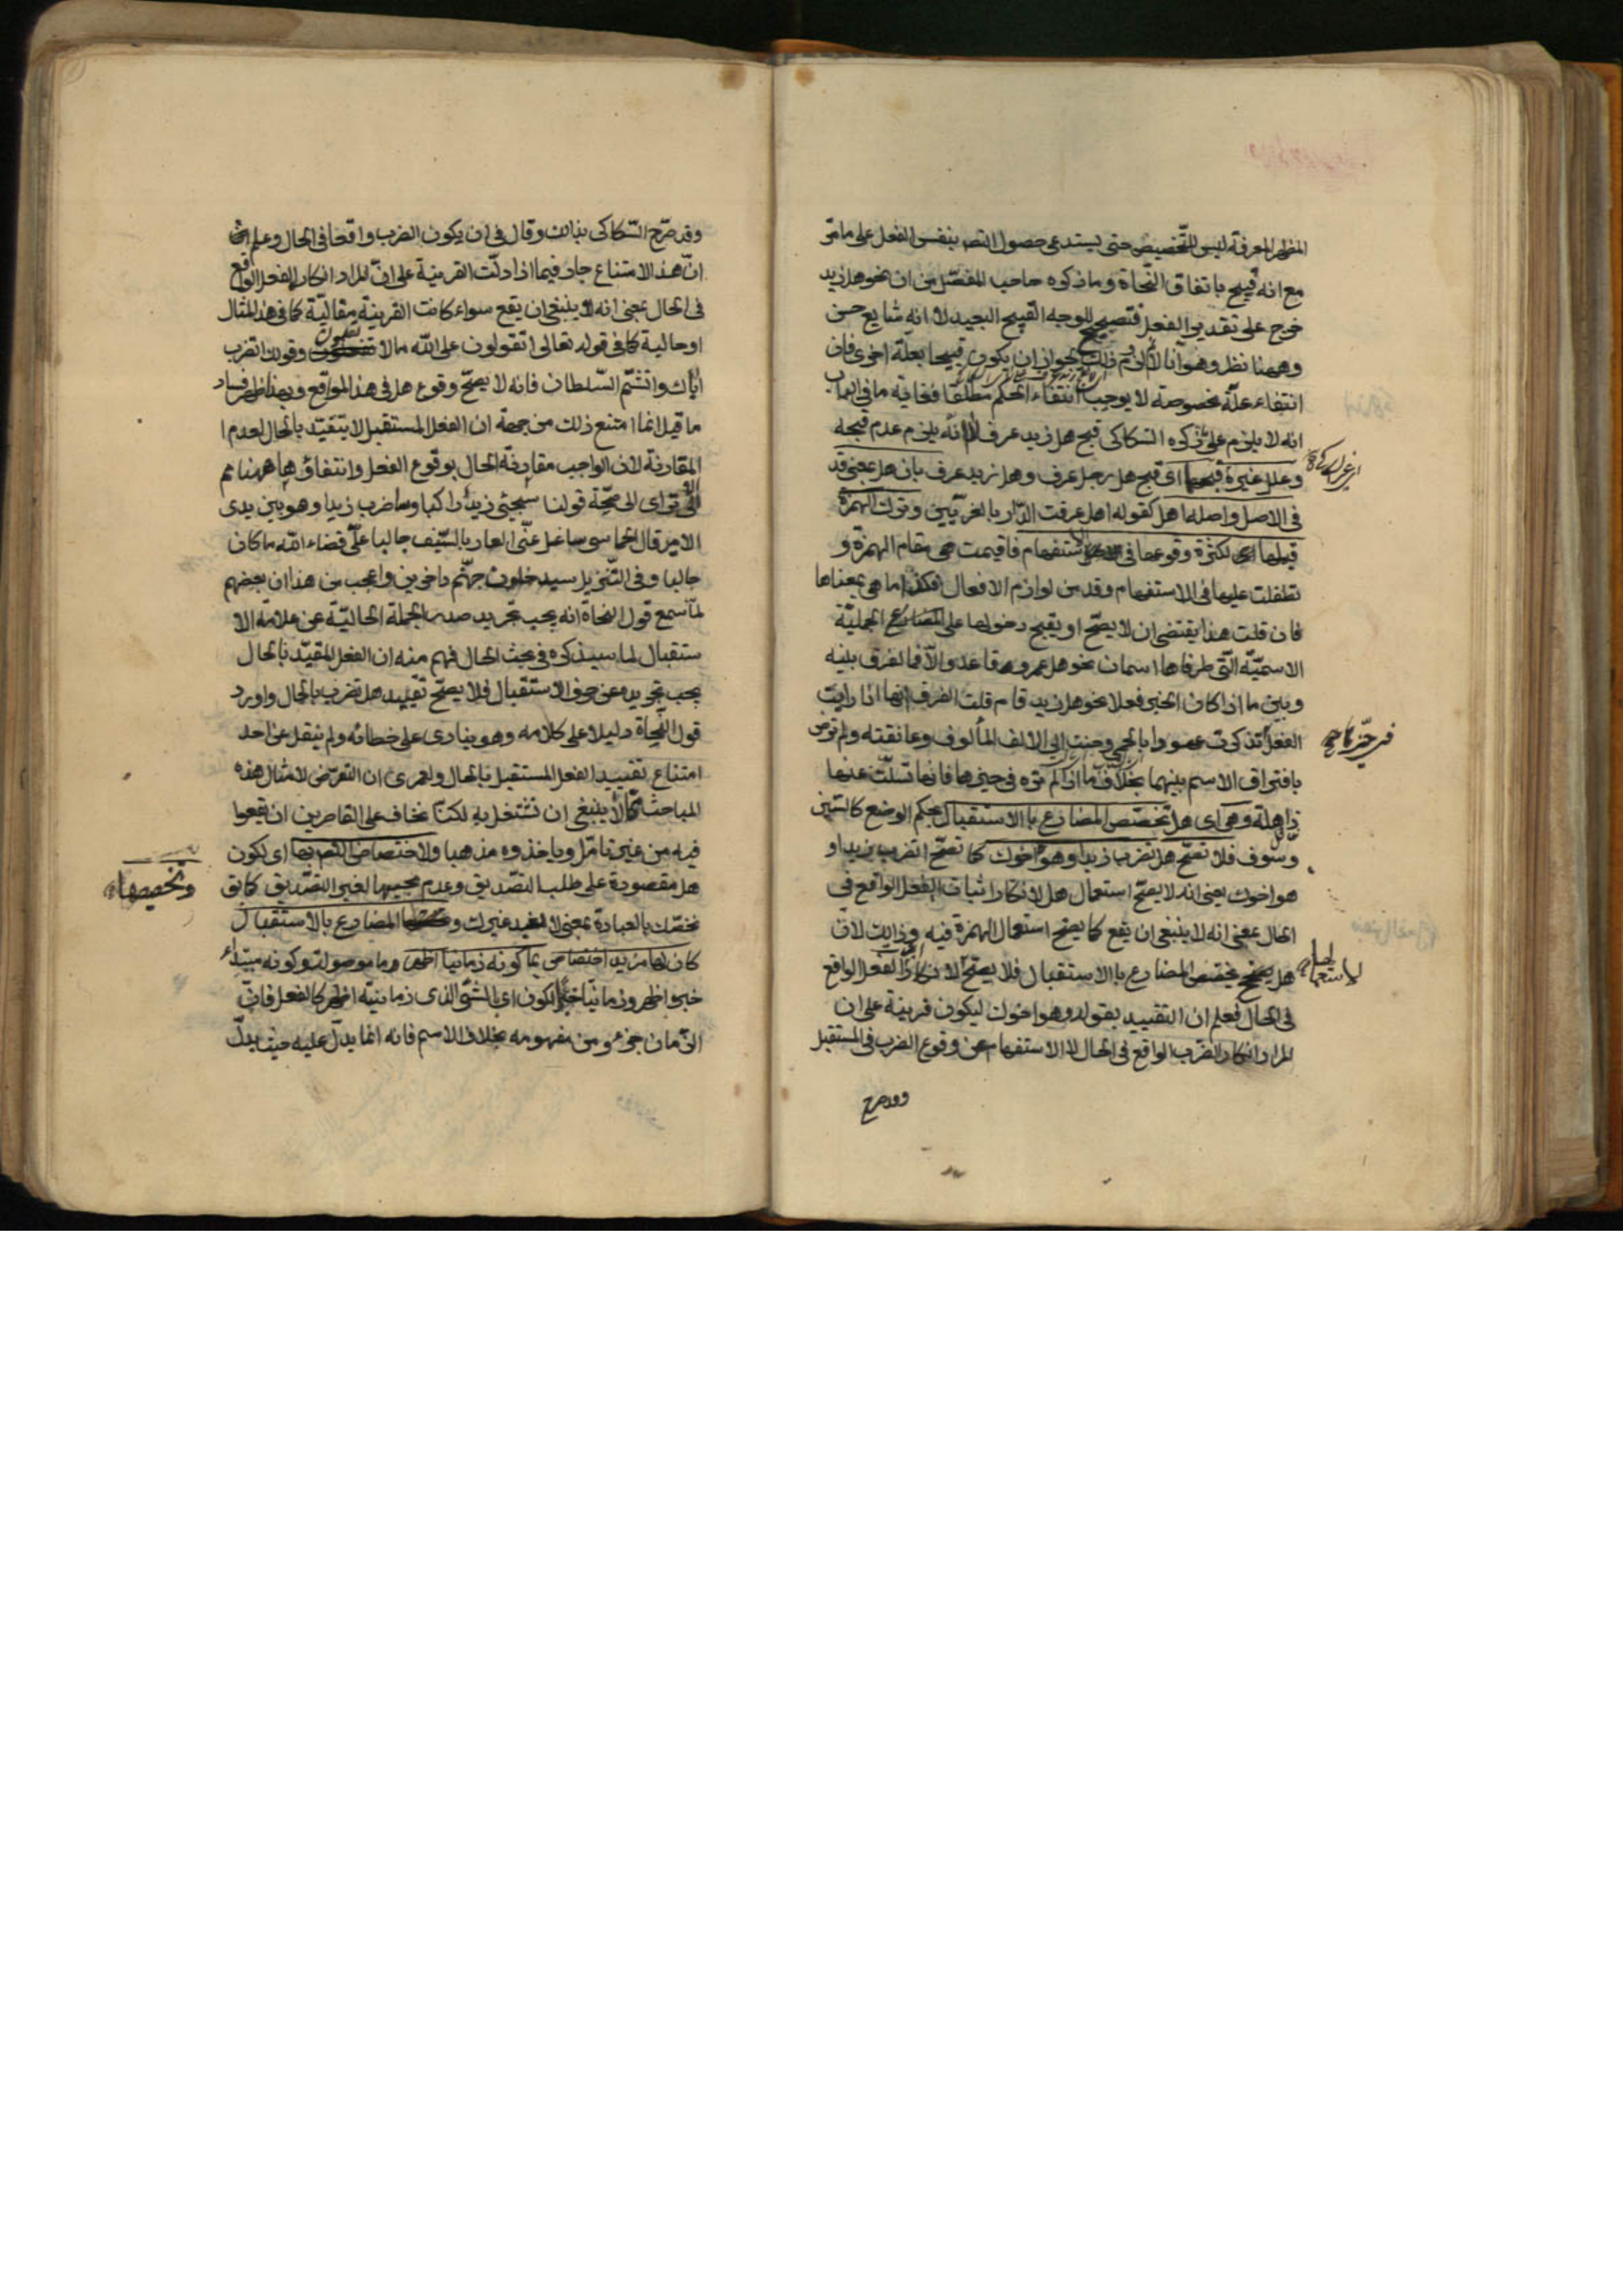 المظهر المعرفة ليس للتخصيص حتى يستدعى حصول التص بنفس الفعل على ما مر
مع انه قبيح باتفاق النحاة وما ذكره صاحب المفصل من ان نحو هل زيد
خرج على تقدير الفعل فتصحيح للوجه القبيح البعيد لا انه شايع حسن
وههنا نظر وهو انا لا نم ذلك لجواز ان يكون قبيحا بعلة اخرى فان
انتفاء علة مخصوصة لا يوجب انتفاء الحكم مطلقا فغاية ما فى الباب
انه لا يلزم على ما ذكره السكاكى قبح هل زيد عرف لا انه يلزم عدم قبحه
وعلل غيره قبحهما اى قبح هل رجل عرف وهل زيد عرف بان هل بمعنى قد
فى الاصل واصله اهل كقوله اهل عرفت الدار بالغريين وترك الهمزة
قبلها لكثرة وقوعها فى الاستفهام فاقيمت هى مقام الهمزة و
تطفلت عليها فى الاستفهام وقد من لوازم الافعال فكذا ما هى بمعناها
فان قلت هذا يقتضى ان لا يصح او يقبح دخولها على الجملية
الاسمية التى طرفاها اسمان نحو هل عمرو قاعد والا فالفرق بينه
وبين ما اذا كان الخبر فعلا نحو هل زيد قام قلت الفرق انها اذا رايت
الفعل تذكرت عهودا بالحمى وحنت الى الالف المألوف وعانقته ولم ترض
بافتراق الاسم بينهما بخلاف ما اذا لم تره فى حيزها فانها تسلت عنها
ذاهلة وهى اى هل تخصص المضارع باالاستقبال بحكم الوضع كالسين
وسوف فلا تصح هل تضرب زيدا وهو اخوك كما تصح اتضرب زيدا و
هو اخوك يعنى انه لا يصح استعمال هل لانكار اثبات الفعل الواقع فى
الحال بمعنى انه لا ينبغى ان يقع كما يصح استعمال الهمزة فيه وذلك لان
هل تخصص المضارع باالاستقبال فلا يصح لانكار الفعل الواقع
فى الحال فعلم ان التقييد بقوله وهو اخوك ليكون قرينة على ان
المراد انكار الضرب الواقع فى الحال لا الاستفهام عن وقوع الضرب فى المستقبل
وقد صرح
وقد صرح السكاكى بذلك وقال فى ان يكون الضرب واقعا فى الحال وعلم
ان هذا الامتناع جار فيما اذا دلت القرينة على ان المراد انكار الفعل الواقع
فى الحال بمعنى انه لا ينبغى ان يقع سواء كانت القرينة مقالية كما فى هذا المثال
او حالية كما فى قوله تعالى اتقولون على الله ما لا تعلمون وقولك اتضرب
اباك واتشتم السلطان فانه لا يصح وقوع هل فى هذا المواقع وبهذا ظهر فساد
ما قيل انما امتنع ذلك من جهة ان الفعل المستقبل لا يتقيد بالحال لعدم ا
المقارنة لان الواجب مقارنة الحال بوقوع الفعل وانتفاؤها ههنا مم
الا ترى الى صحة قولنا سيجئ زيد راكبا وساضرب زيدا وهو بين يدى
الامير قال الحماسى ساغسل عنى العار بالسيف جالبا على قضاء الله ما كان
جالبا وفى التنزيل سيدخلون جهنم داخرين واعجب من هذا ان بعضهم
لما سمع قول النحاة انه يجب تجريد صدر الجملة الحالية عن علامة الا
ستقبال لما سيذكره فى بحث الحال فهم منه ان الفعل المقيد بالحال
يجب تجريده عن حرف الاستقبال فلا يصح تقييد هل تضرب بالحال واورد
قول النحاة دليلا على كلامه وهو ينادى على خطائه ولم ينقل عن احد
امتناع تقييد الفعل المستقبل بالحال ولعمرى ان التعرض لامثال هذه
المباحث مما لا ينبغى ان نشتغل به لكنا نخاف على القاصرين ان يقعوا
فيه من غير تامل وياخذوه مذهبا ولاختصاص التص بها اى لكون
هل مقصورة على طلب التصديق وعدم مجيها لغير التصديق كما يق
نخصك بالعبادة بمعنى لا نعبد غيرك و المضارع بالاستقبال
وتخصيصها
كان لها مزيد اختصاص بما كونه زمانيا اظهر وما موصولة وكونه مبتداء
خبره اظهر وزمانيا خبر لكون اى الشئ الذى زمانيته اظهر كالفعل فان
الزمان جزء من مفهومه بخلاف الاسم فانه انما يدل عليه حيث يدل